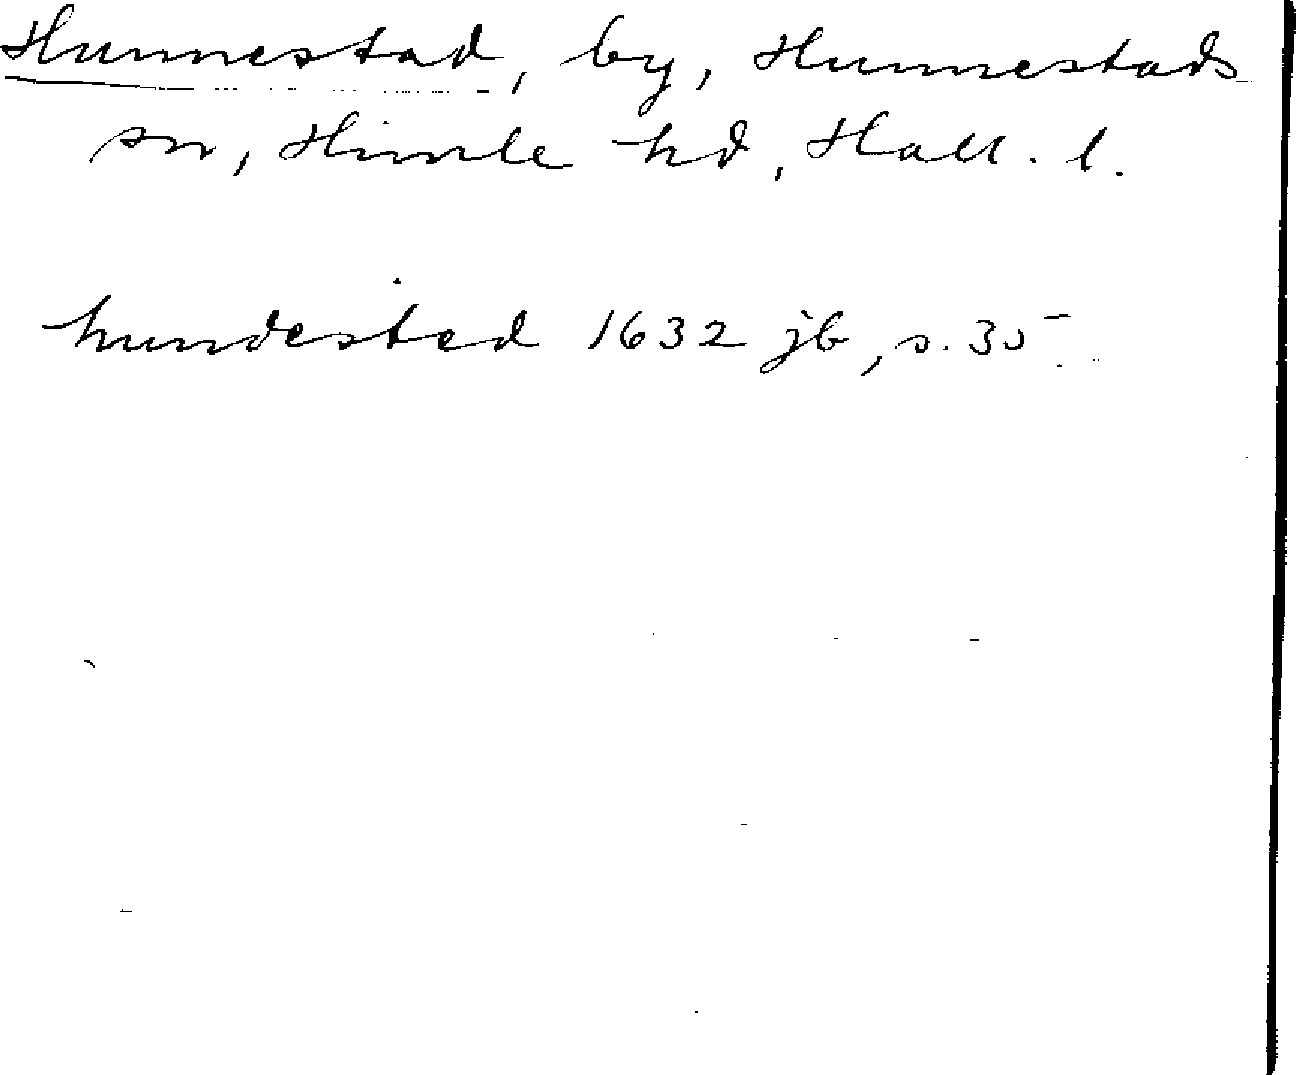 Hunnestad, by, Hunnestads
sn, Himle hd, Hall. l.
hundested 1632 jb, s. 35